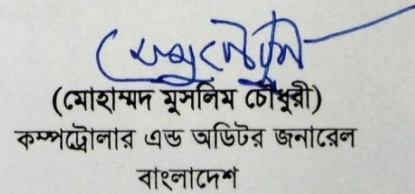 (মোহাম্মদ মুসলিম চৌধুরী)
কম্পট্রোলার এন্ড অডিটর জনারেল
বাংলাদেশ